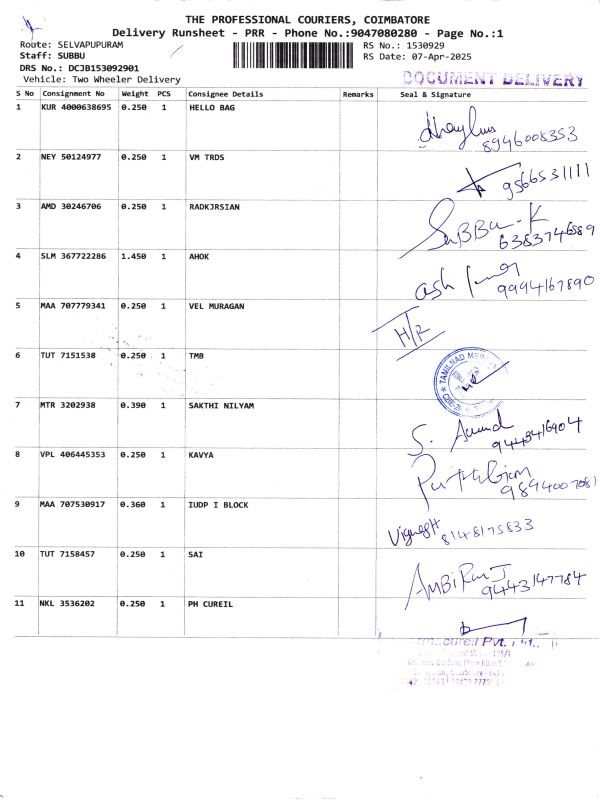 THE PROFESSIONAL COURIERS, COIMBATORE
Delivery Runsheet - PRR - Phone No.:9047080280 - Page No.:1
Route: SELVAPUPURAM RS No.: 1530929
Staff: SUBBU RS Date: 07-Apr-2025
DRS No.: DCJB153092901
Vehicle: Two Wheeler Delivery DOCUMENT DELIVERY
S No Consignment No Weight PCS Consignee Details Remarks Seal & Signature
1 KUR 4000638695 0.250 1 HELLO BAG
8946008353
2 NEY 50124977 0.250 1 VM TRDS
9566531111
3 AMD 30246706 0.250 1 RADKJRSIAN SUBBU-K
6383746589
4 SLM 367722286 1.450 1 AHOK
9994167890
5 MAA 707779341 0.250 1 VEL MURAGAN H/R
6 TUT 7151538 0.250 1 TMB TAMILNAD
7 MTR 3202938 0.390 1 SAKTHI NILYAM S. Anand
9443416904
8 VPL 406445353 0.250 1 KAVYA
9894007081
9 MAA 707530917 0.360 1 IUDP I BLOCK Vignesh 8148175833
10 TUT 7158457 0.250 1 SAI
9443147784
11 NKL 3536202 0.250 1 PH CUREIL
Pvt.